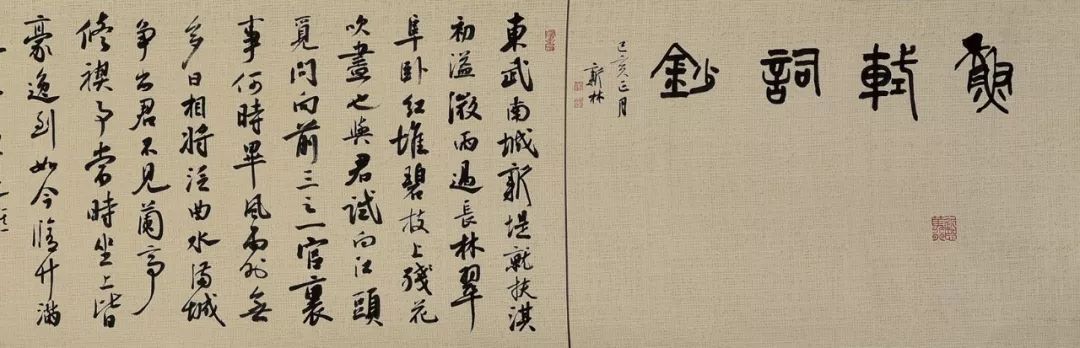 蘇軾詞鈔
己亥正月
新林
東武南城新堤就扶淇
初溢微雨過長林翠
阜卧紅堆碧枝上殘花
吹盡也與君試向江頭
覓問向前三之一官裏
事何時畢風雨外無
多日相將泛曲水滿城
争出君不見蘭亭
脩禊事當時坐上皆
豪逸到如今脩竹滿